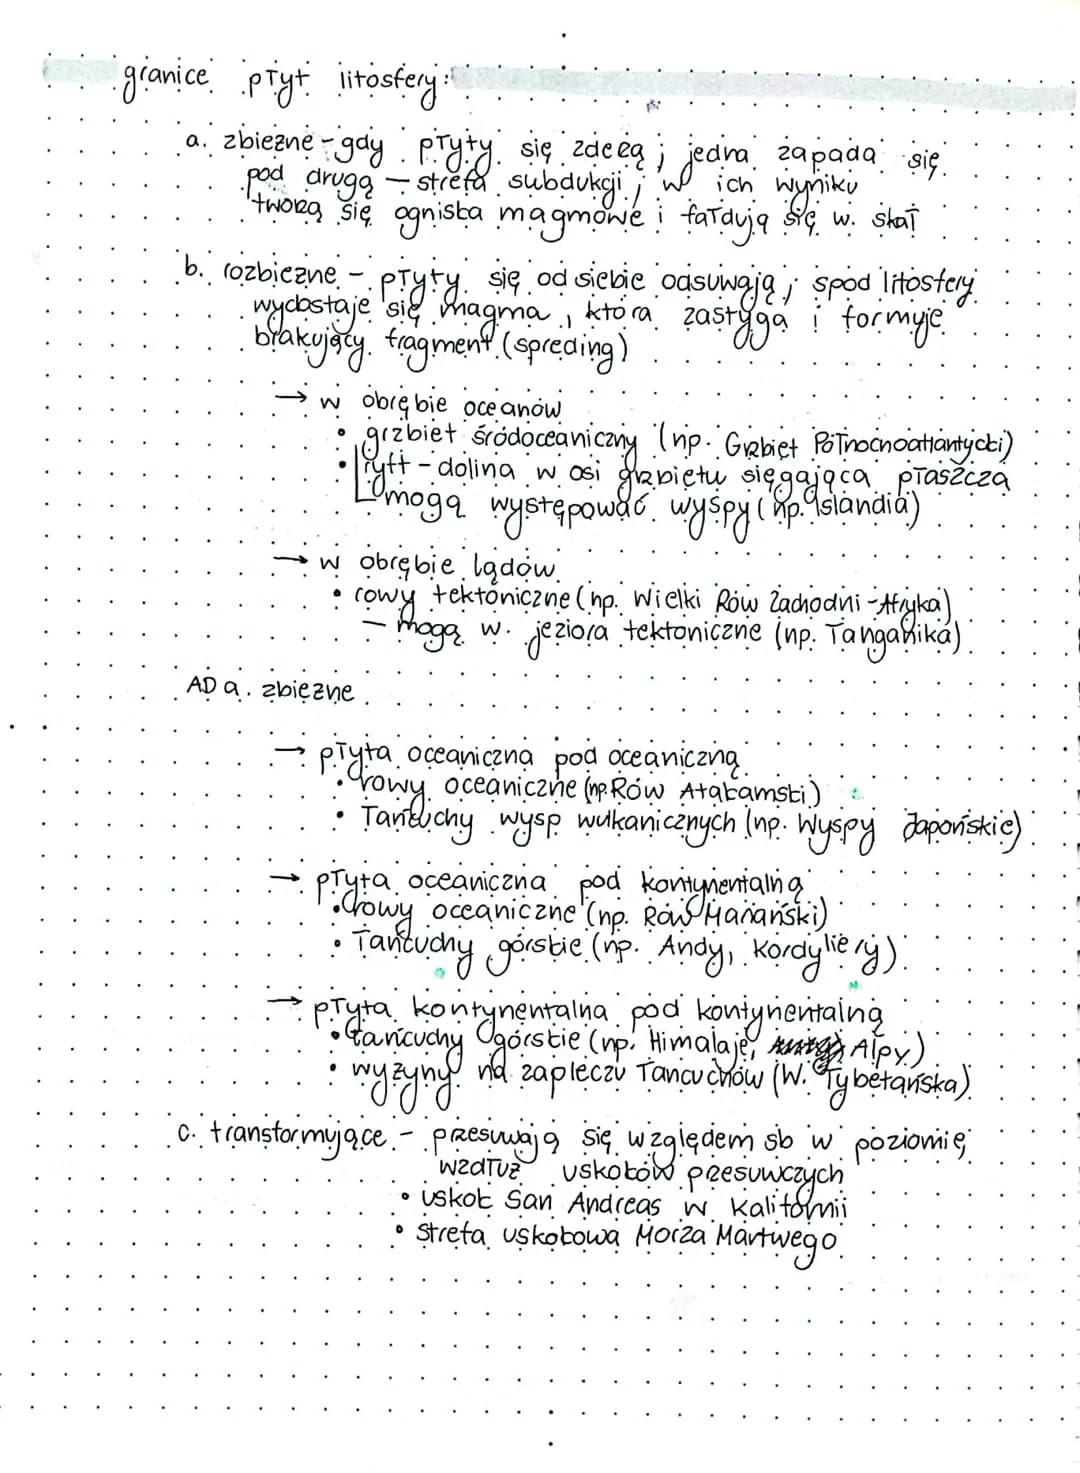 granice płyt litosfery:
a. zbieżne - gdy płyty się zderzą ; jedna zapada się
pod drugą - strefa subdukcji ; w ich wyniku
tworzą się ogniska magmowe i fałdują się w. skał
b. rozbieżne - płyty się od siebie odsuwają ; spod litosfery
wydostaje się magma , która zastyga i formuje
brakujący fragment (spreding)
→ w obrębie oceanów
• grzbiet śródoceaniczny (np. Grzbiet Północnoatlantycki)
• ryft - dolina w osi grzbietu sięgająca płaszcza
mogą występować wyspy (np. Islandia)
→ w obrębie lądów
• rowy tektoniczne (np. Wielki Rów Zachodni - Afryka)
- mogą w. jeziora tektoniczne (np. Tanganika)
AD a. zbieżne
→ płyta oceaniczna pod oceaniczną
• rowy oceaniczne (np. Rów Atakamski)
• Łańcuchy wysp wulkanicznych (np. Wyspy Japońskie)
→ płyta oceaniczna pod kontynentalną
• rowy oceaniczne (np. Rów Mariański)
• łańcuchy górskie (np. Andy, Kordyliery)
→ płyta kontynentalna pod kontynentalną
• łańcuchy górskie (np. Himalaje, Alpy)
• wyżyny na zapleczu łańcuchów (W. Tybetańska)
c. transformujące - przesuwają się względem sb w poziomie
wzdłuż uskoków przesuwczych
• uskok San Andreas w Kalifornii
• strefa uskokowa Morza Martwego